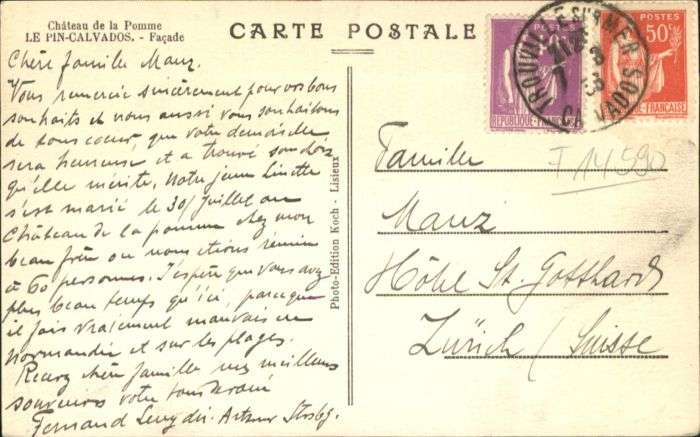 Château de la Pomme
LE PIN-CALVADOS. - Façade
CARTE POSTALE
Chère famille Manz.
Vous remercie sincèrement pour vos bons
souhaits et nous aussi vous souhaitons
de tous coeur, que votre demoiselle
sera heureuse et a trouvé
qu'elle mérite. Notre
s'est marié le 30/Juillet au
Château de la pomme chez mon
beau frère ou nous étions réunis
à 60 personnes. J'espère que vous avez
plus beau temps qu'ici, parceque
il fais vraiment mauvais en
Normandie et sur les plages.
Recevez chère famille mes meilleurs
souvenirs votre tous
Fernand
Photo-Edition Koch - Lisieux
POSTES
REPUBLIQUE FRANÇAISE
TROUVILLE SUR MER
CALVADOS
POSTES
50c
FRANÇAISE
T 14590
Famille
Manz
Hôtel St. Gotthard
Zürich / Suisse